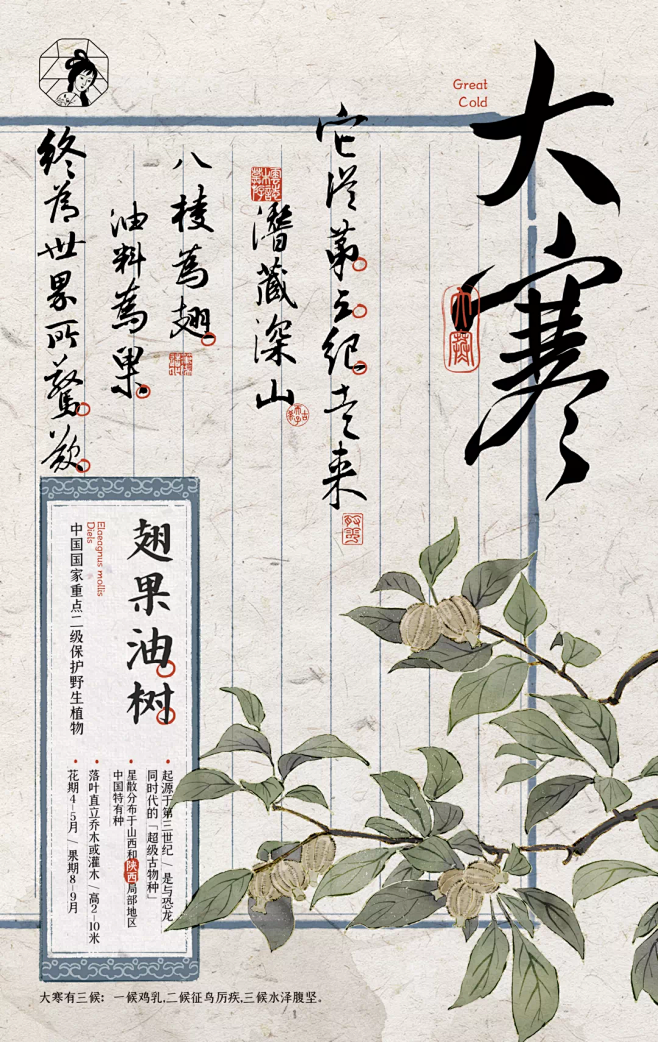 大寒
Great
Cold
大寒
它從第三纪走来
潛藏深山
八棱為翅
油料為果
終為世界所驚歎
翅果油树
Elaeagnus mollis
Diels
中国国家重点二级保护野生植物
起源于第三世纪/是与恐龙
同时代的「超级古物种」
星散分布于山西和陕西局部地区
中国特有种
落叶直立乔木或灌木/高2-10米
花期4-5月/果期8-9月
大寒有三候：一候鸡乳,二候征鸟厉疾,三候水泽腹坚。